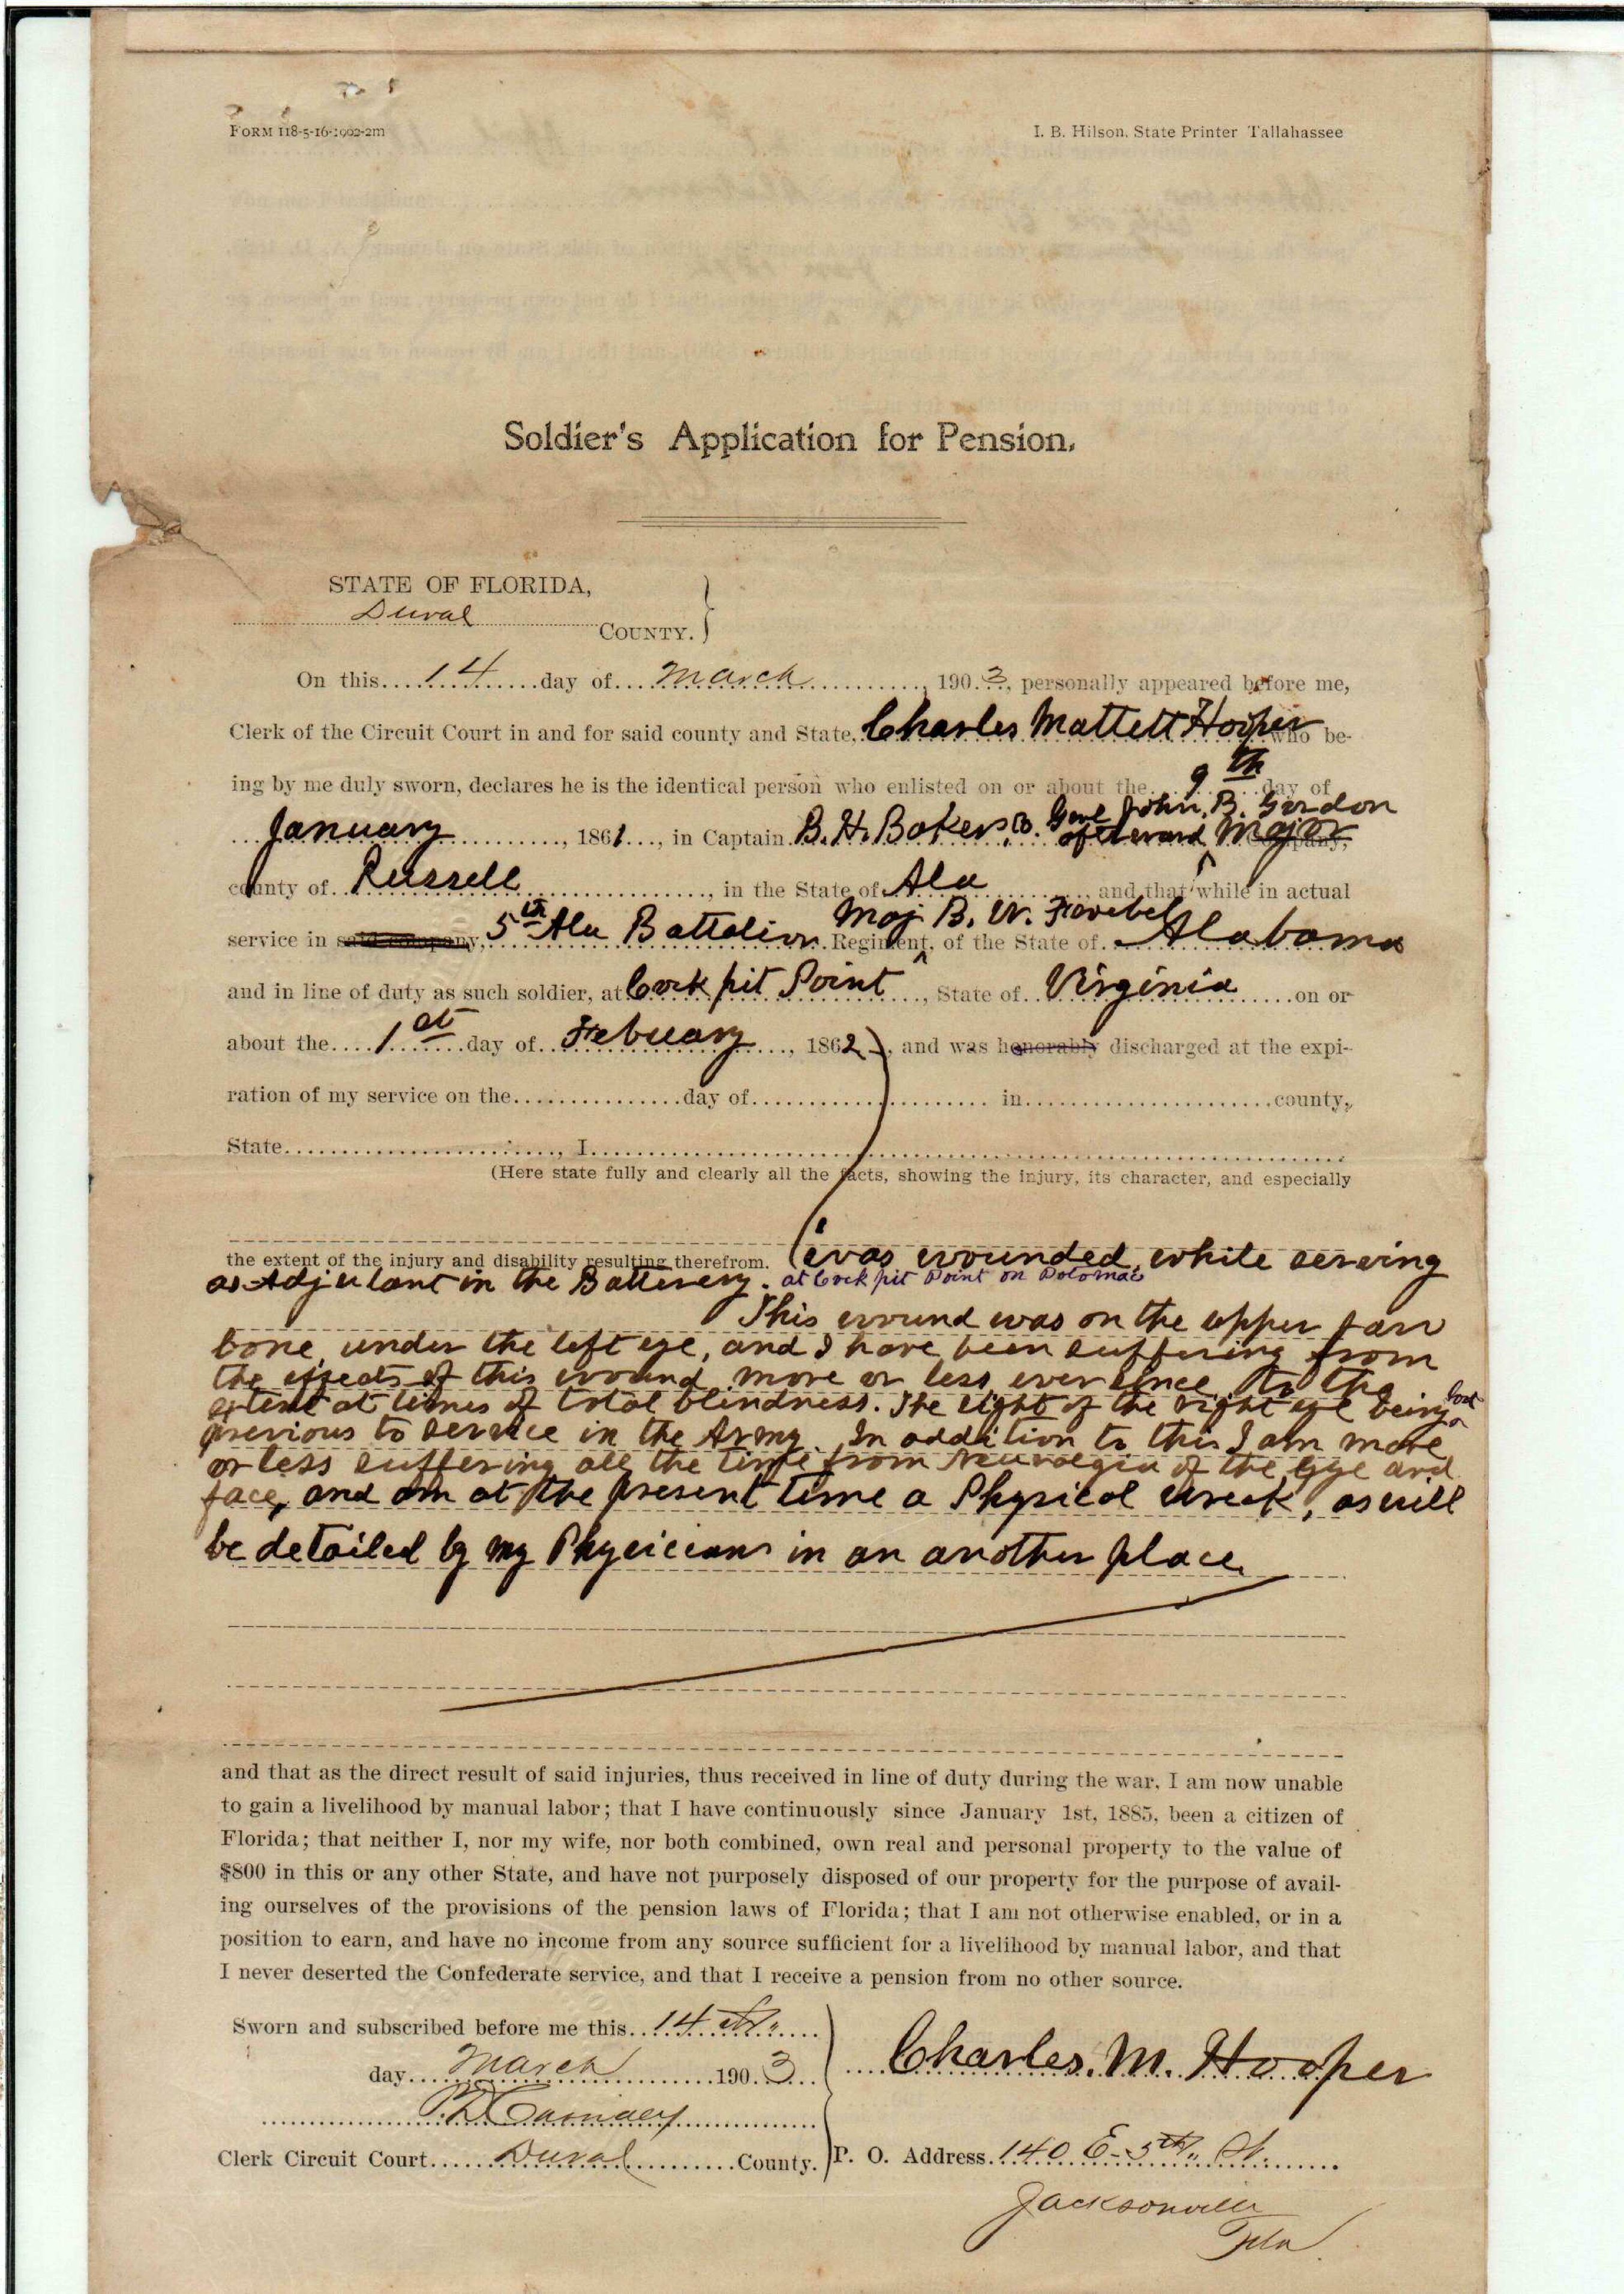 FORM 118-5-16-1902-2m
I. B. Hilson, State Printer Tallahassee
Soldier's Application for Pension.
STATE OF FLORIDA,
Duval COUNTY.
On this 14 day of March, 1903, personally appeared before me,
Clerk of the Circuit Court in and for said county and State, Charles Mattett Hooper who be-
ing by me duly sworn, declares he is the identical person who enlisted on or about the 9th day of
January, 1861, in Captain B. H. Bakers Co. Genl John. B. Gordon afterward Major Company,
county of Russell, in the State of Ala and that while in actual
service in said company, 5th Ala Battalion Maj B. W. Regiment, of the State of Alabama
and in line of duty as such soldier, at Cock pit Point, State of Virginia on or
about the 1st day of Febuary, 1862, and was honorably discharged at the expi-
ration of my service on the day of in county,
State, I
(Here state fully and clearly all the facts, showing the injury, its character, and especially
the extent of the injury and disability resulting therefrom. I was wounded, while serving
as Adjutant in the Batterery. at Cock pit Point on Potomac
This wound was on the upper jaw
bone under the left eye, and I have been suffering from
the effects of this wound more or less ever since, to the
extent at times of total blindness. The sight of the right eye being lost
previous to service in the Army. In addition to this I am more
or less suffering all the time from Neuralgia of the Eye and
face, and am at the present time a Physical wreck, as will
be detailed by my Physicians in an another place
and that as the direct result of said injuries, thus received in line of duty during the war, I am now unable
to gain a livelihood by manual labor; that I have continuously since January 1st, 1885, been a citizen of
Florida; that neither I, nor my wife, nor both combined, own real and personal property to the value of
$800 in this or any other State, and have not purposely disposed of our property for the purpose of avail-
ing ourselves of the provisions of the pension laws of Florida; that I am not otherwise enabled, or in a
position to earn, and have no income from any source sufficient for a livelihood by manual labor, and that
I never deserted the Confederate service, and that I receive a pension from no other source.
Sworn and subscribed before me this 14th
day March 1903
Charles. M. Hooper
Clerk Circuit Court Duval County.
P. O. Address 140 E-5th St.
Jacksonville
Fla